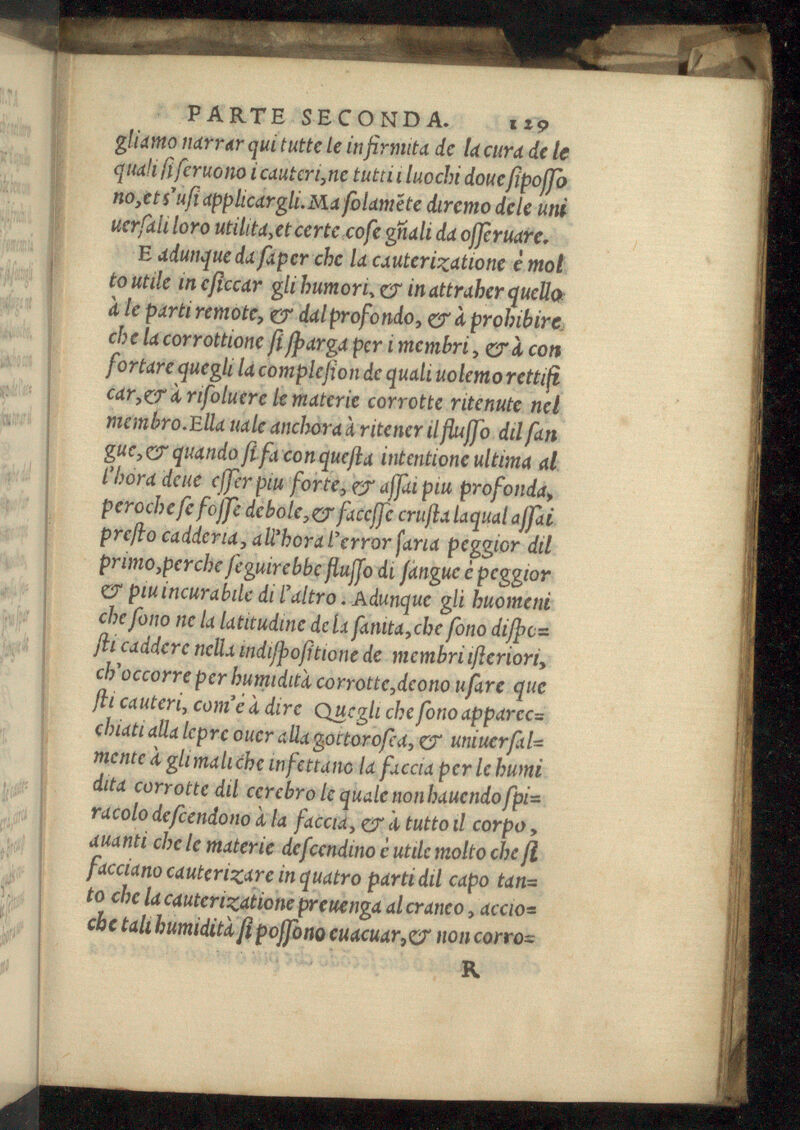 PARTE SECONDA. 129
gliamo narrar qui tutte le infirmita de la cura de le
quali ſi ſeruono i cauteri,ne tutti i luochi doue ſipoſſo
no,et s'uſi applicargli.Ma ſolamēte diremo dele uni
uerſali loro utilita,et certe coſe gñali da oſſeruare.
E adunque da ſaper che la cauterizatione è mol
to utile in eſiccar gli humori, & in attraher quello
à le parti remote, & dal profondo, & à prohibire
che la corrottione ſi ſparga per i membri, & à con
fortare quegli la compleſion de quali uolemo rettifi
car,& à riſoluere le materie corrotte ritenute nel
membro.Ella uale anchora à ritener il fluſſo dil ſan
gue,& quando ſi fa con queſta intentione ultima al
l'hora deue eſſer piu forte, & aſſai piu profonda,
peroche ſe foſſe debole,& faceſſe cruſta laqual aſſai
preſto cadderia, all'hora l'error ſaria peggior dil
primo,perche ſeguirebbe fluſſo di ſangue è peggior
& piu incurabile di l'altro. Adunque gli huomeni
che ſono ne la latitudine de la ſanita,che ſono diſpo=
ſti caddere nella indiſpoſitione de membri iſteriori,
ch'occorre per humidità corrotte,deono uſare que
ſti cauteri, com'è à dire Quegli che ſono apparec=
chiati alla lepre ouer alla gottoroſea, & uniuerſal=
mente à gli mali che infettano la faccia per le humi
dita corrotte dil cerebro le quale non hauendo ſpi=
racolo deſcendono à la faccia, & à tutto il corpo,
auanti che le materie deſcendino è utile molto che ſi
facciano cauterizare in quatro parti dil capo tan=
to che la cauterizatione preuenga al craneo, accio=
che tali humidità ſi poſſono euacuar,& non corro=
R